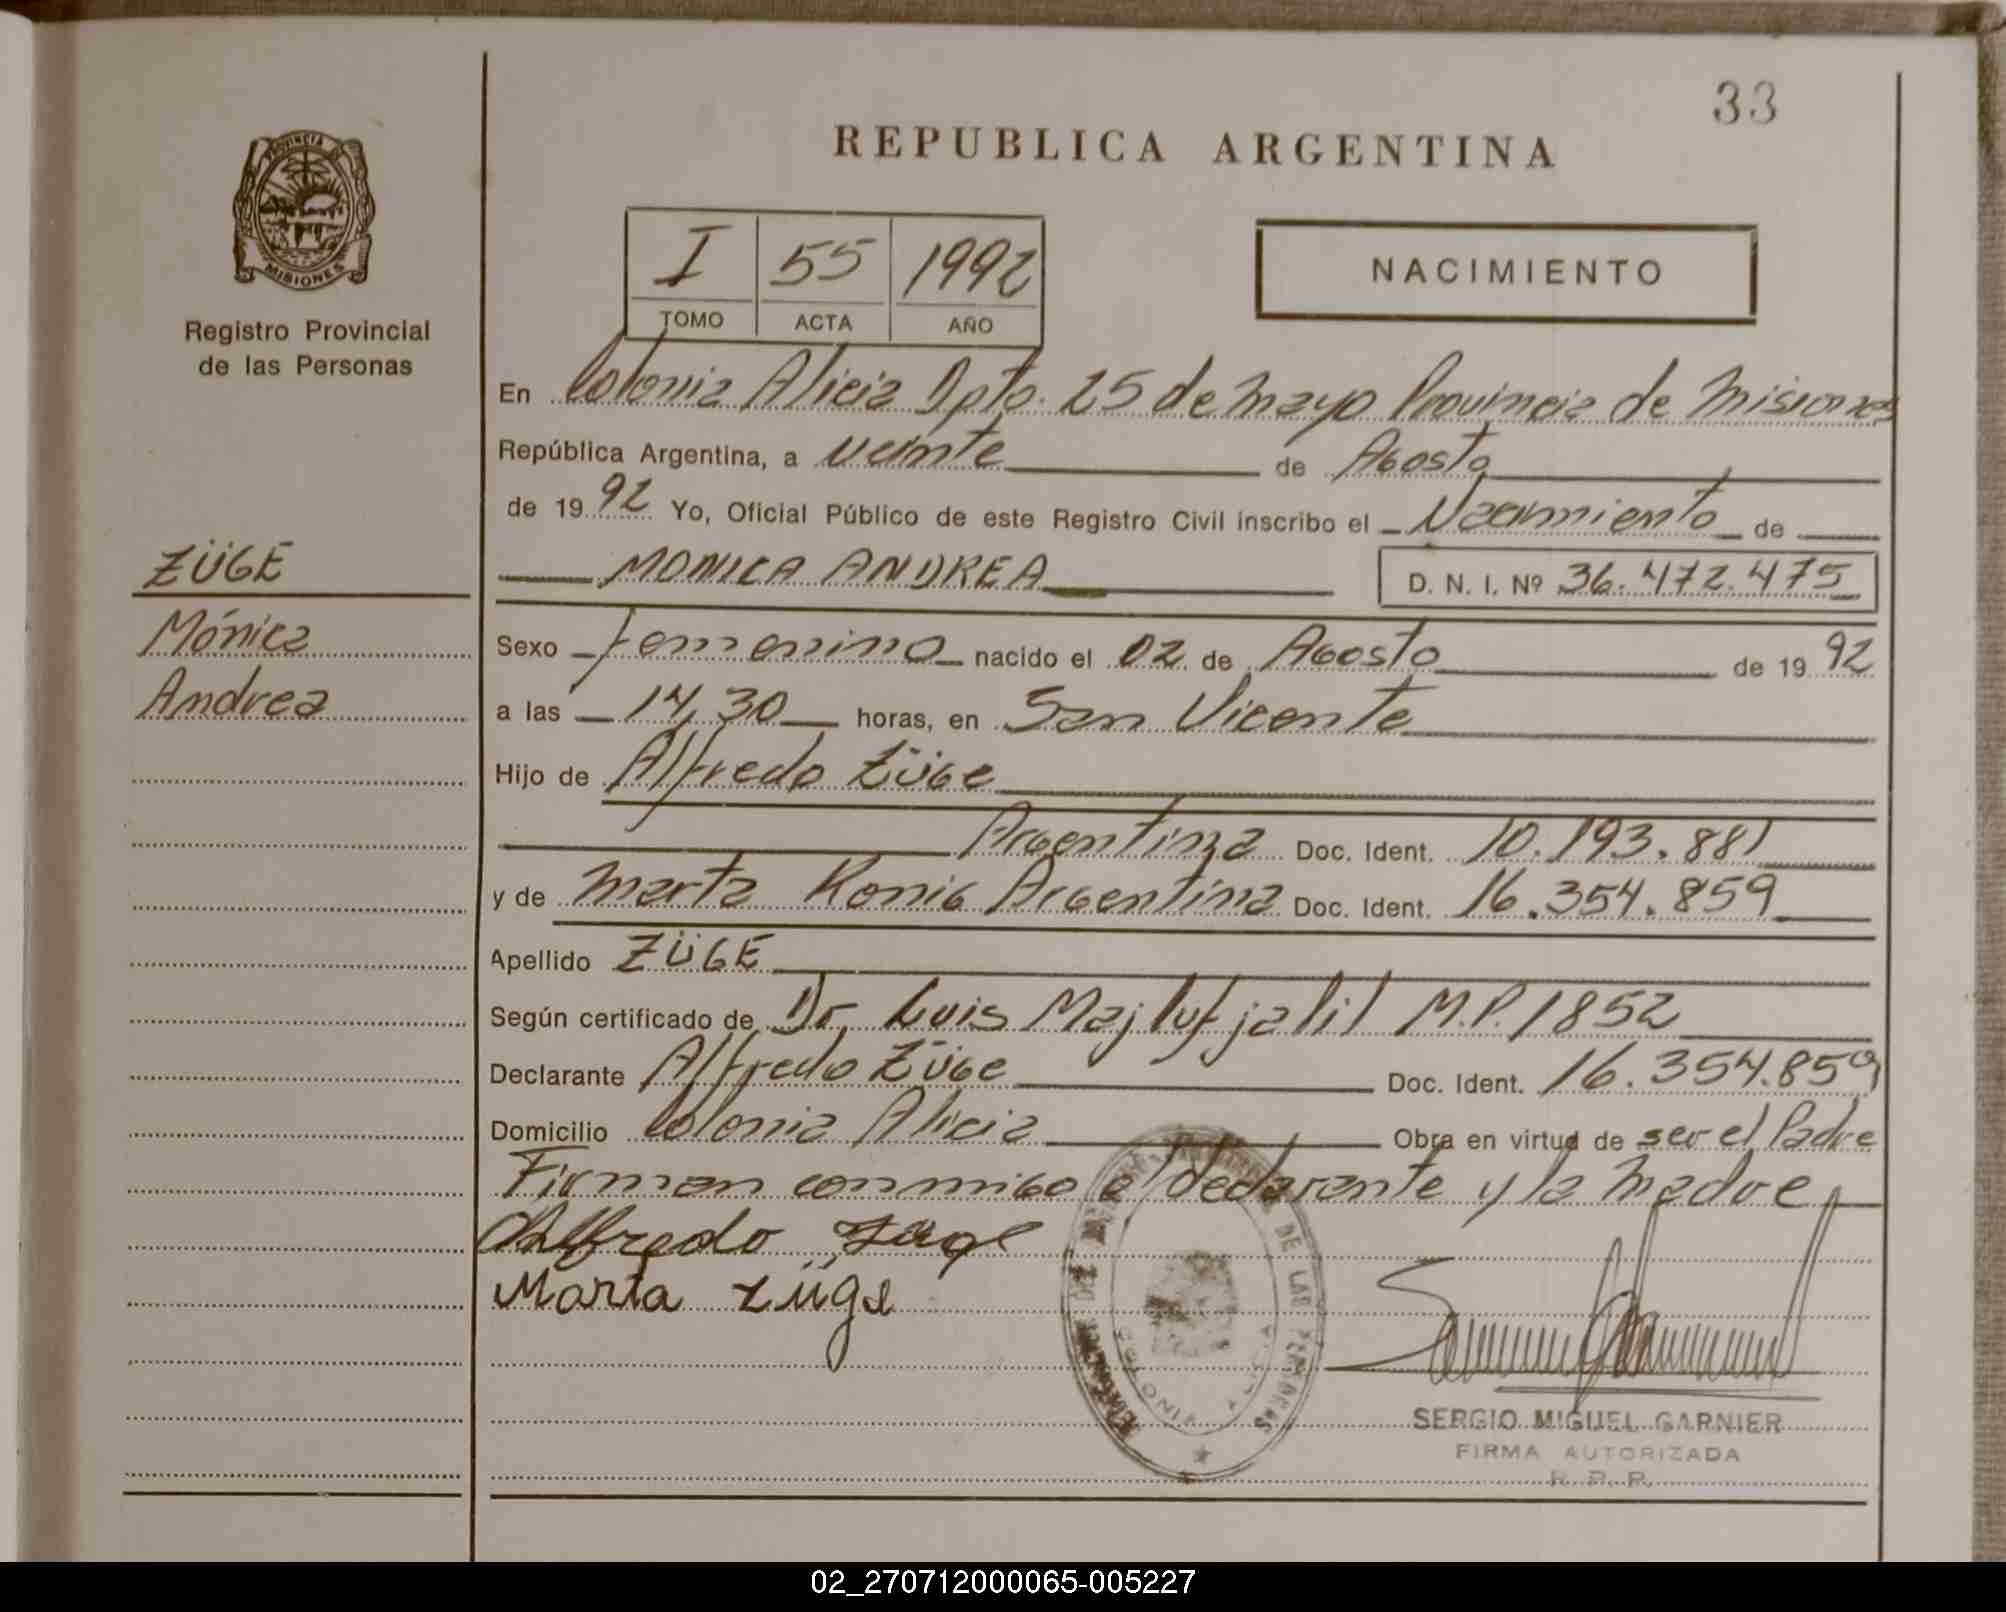 33
REPUBLICA ARGENTINA
PROVINCIA DE
MISIONES
Registro Provincial
de las Personas
I 55 1992
TOMO ACTA AÑO
NACIMIENTO
En Colonia Alicia Dpto. 25 de mayo Provincia de Misiones
República Argentina, a veinte de Agosto
de 1992 Yo, Oficial Público de este Registro Civil inscribo el Nacimiento de
ZÜGE
MONICA ANDREA D. N. I. Nº 36.472.475
Mónica
Sexo Femenino nacido el 02 de Agosto de 1992
Andrea
a las 14,30 horas, en San Vicente
Hijo de Alfredo Züge
Argentina Doc. Ident. 10.193.881
y de Marta Konig Argentina Doc. Ident. 16.354.859
Apellido ZÜGE
Según certificado de Dr. Luis Majluf jalil M.P. 1852
Declarante Alfredo Züge Doc. Ident. 16.354.859
Domicilio Colonia Alicia Obra en virtud de ser el Padre
Firman conmigo el declarante y la madre
Alfredo Züge
Marta Züge
DE LAS PERSONAS
COLONIA ALICIA
SERGIO MIGUEL GARNIER
FIRMA AUTORIZADA
R. P. P.
02_270712000065-005227